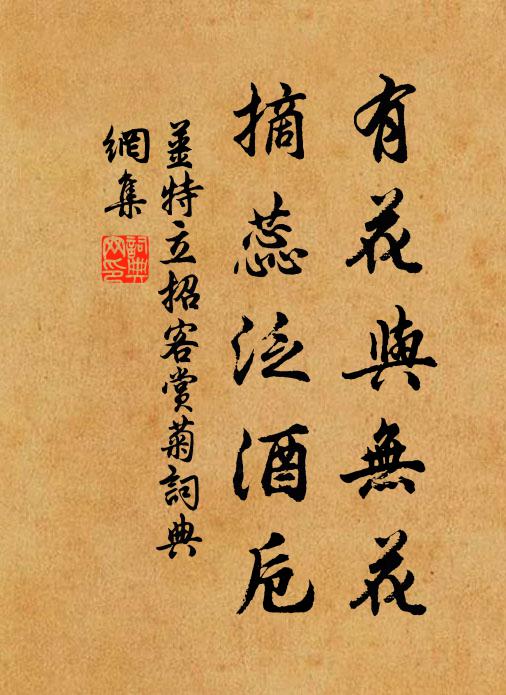 有花與無花
摘蕊泛酒卮
姜特立招客賞菊詞典
網集
詞典
网印